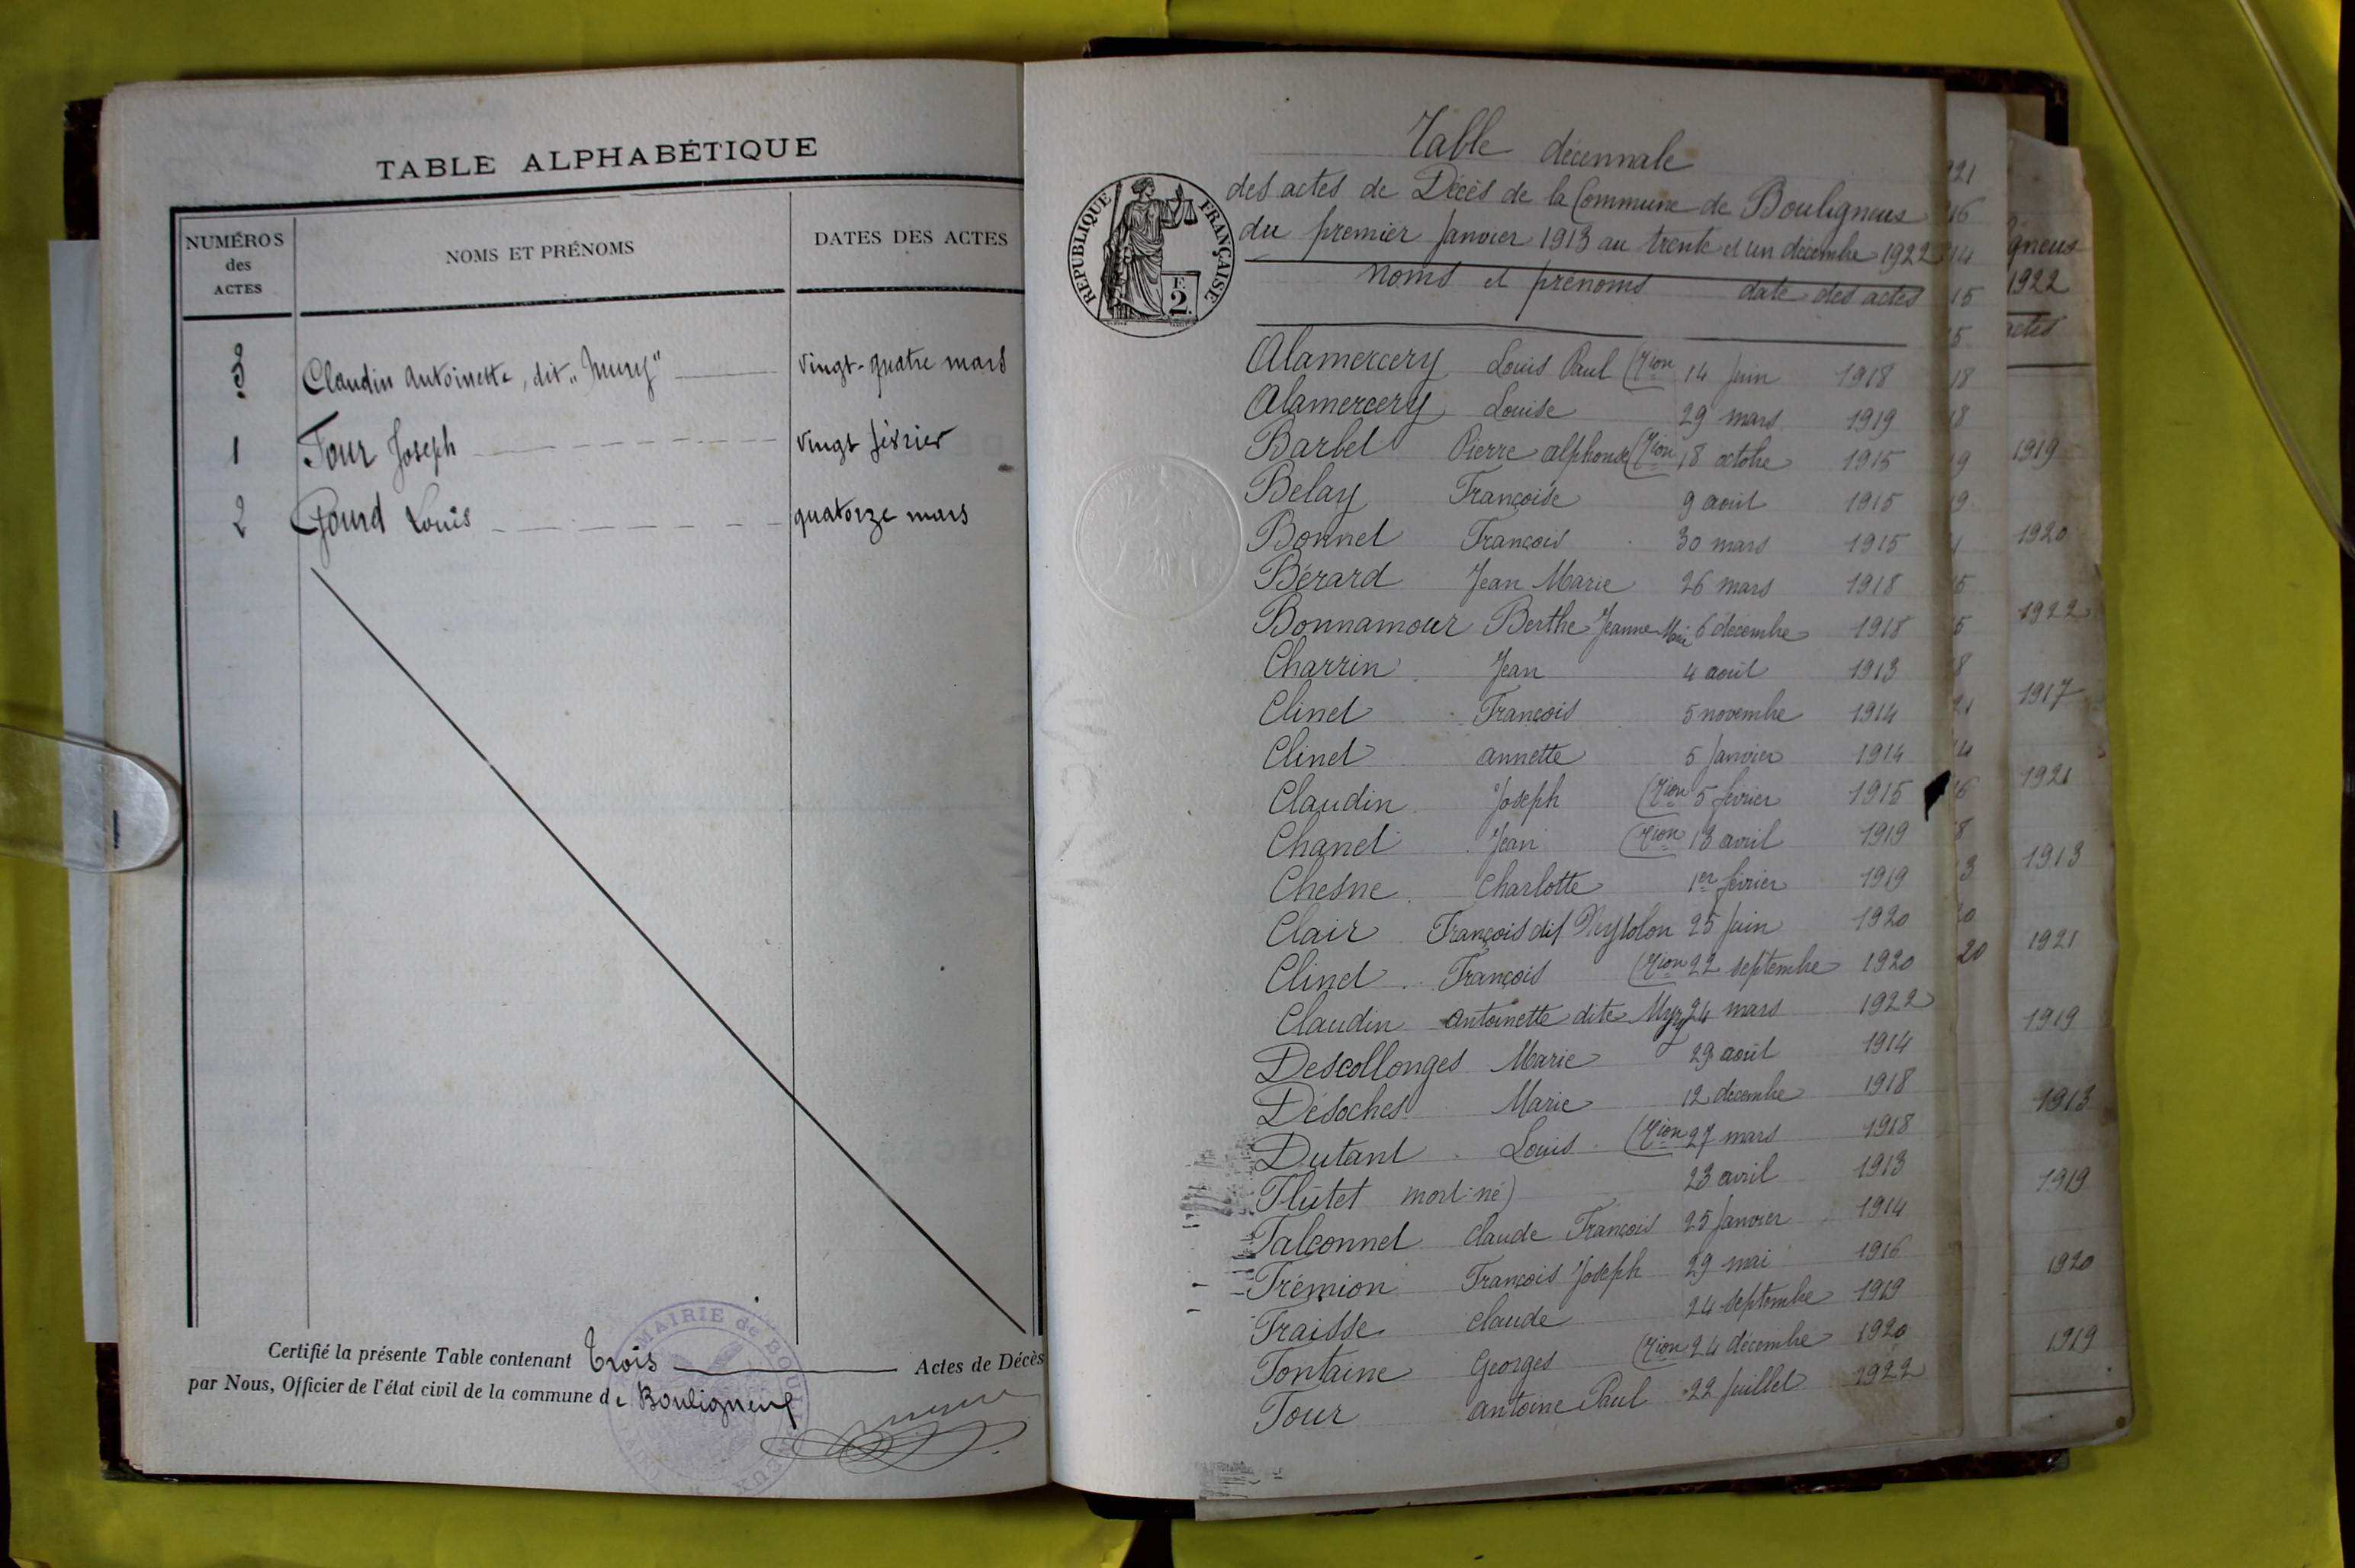 TABLE ALPHABÉTIQUE
NUMÉROS
des
ACTES
NOMS ET PRÉNOMS
DATES DES ACTES
3 Claudin Antoinette, dit „Mury" vingt-quatre mars
1 Four Joseph vingt février
2 Gourd Louis quatorze mars
Certifié la présente Table contenant Trois Actes de Décès
par Nous, Officier de l'état civil de la commune de Bouligneux
MAIRIE de BOULIGNEUX
RÉPUBLIQUE FRANÇAISE
2
Table decennale
des actes de Décès de la Commune de Bouligneux
du premier Janvier 1913 au trente et un décembre 1922
noms et prénoms date des actes
Alamercery Louis Paul (Tion 14 Juin 1918
Alamercery Louise 29 mars 1919
Barbet Pierre alphonse (Tion 18 octobre 1915
Belay Françoise 9 août 1915
Bonnet François 30 mars 1915
Bérard Jean Marie 26 mars 1918
Bonnamour Berthe Jeanne Marie 6 décembre 1918
Charrin Jean 4 août 1913
Clinet François 5 novembre 1914
Clinet annette 5 Janvier 1914
Claudin Joseph (Tion 5 février 1915
Chanet Jean (Tion 13 avril 1919
Chesne Charlotte 1er février 1919
Clair François dit 25 Juin 1920
Clinet François (Tion 22 septembre 1920
Claudin Antoinette dite 24 mars 1922
Descollonges Marie 29 août 1914
Désoches Marie 12 décembre 1918
Dutant Louis (Tion 27 mars 1918
Flutet mort-né) 23 avril 1913
Falconnet Claude François 25 Janvier 1914
Frémion François Joseph 29 mai 1916
Fraisse Claude 24 septembre 1919
Fontaine Georges (Tion 24 décembre 1920
Four Antoine Paul 22 Juillet 1922
gneux
1922
actes
1919
1920
1922
1917
1921
1913
1921
1919
1913
1919
1920
1919